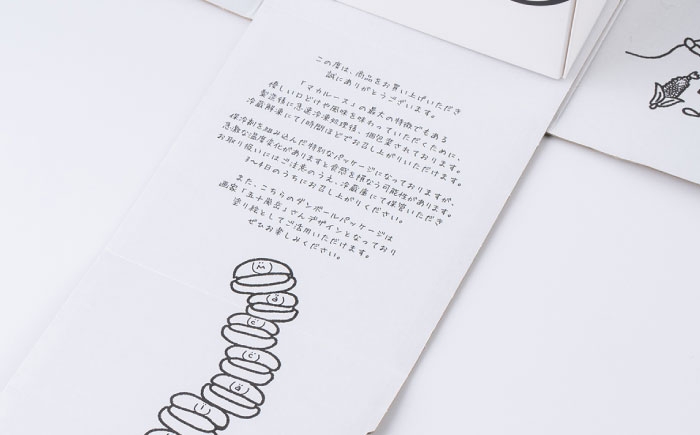 この度は、商品をお買い上げいただき
誠にありがとうございます。
「マカルース」の最大の特徴でもある
優しい口どけや風味を味わっていただくために、
製造後に急速冷凍処理後、個包装されております。
冷蔵解凍にて1時間ほどでお召し上がりいただけます。
保冷剤を組み込んだ特別なパッケージになっておりますが、
急激な温度変化がありますと食感を損なう可能性があります。
お取り扱いにはご注意のうえ、冷蔵庫にて保管いただき
3〜4日のうちにお召し上がりください。
また、こちらのダンボールパッケージは
画家「五十嵐岳」さんデザインとなっており
塗り絵としてご活用いただけます。
ぜひお楽しみください。